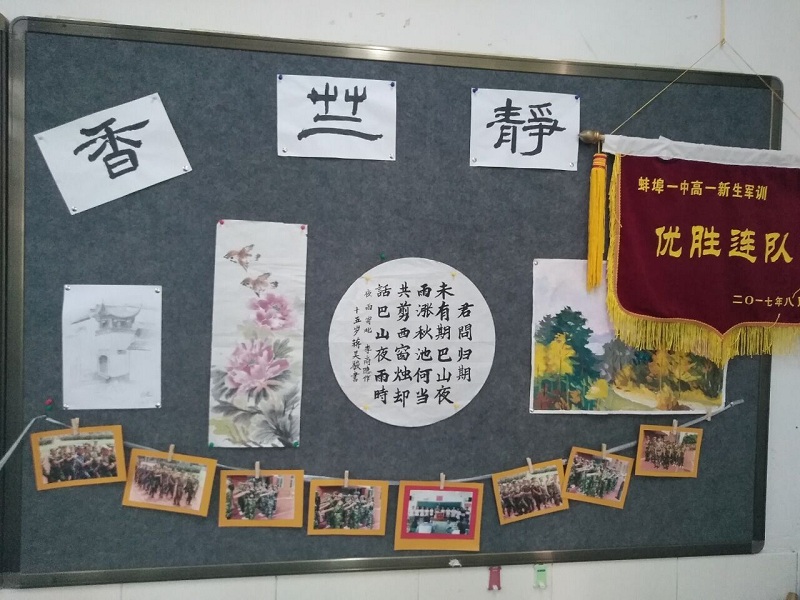 香
靜
蚌埠一中高一新生军训
优胜连队
二〇一七年八月
君問归期
未有期巴山夜
雨涨秋池何当
共剪西窗烛却
話巴山夜雨時
夜雨寄北 李商隐作
十五岁
書